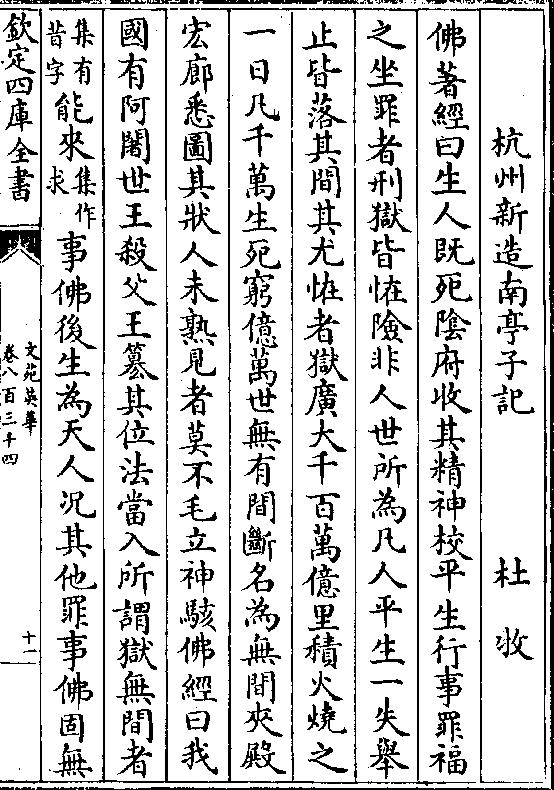 杭州新造南亭子記 杜牧
佛著經曰生人既死陰府收其精神校平生行事罪福
之坐罪者刑獄皆恠險非人世所為凡人平生一失舉
止皆落其間其尤恠者獄廣大千百萬億里積火燒之
一日凡千萬生死窮億萬世無有間斷名為無間夾殿
宏廊悉圖其狀人未熟見者莫不毛立神駭佛經曰我
國有阿闍世王殺父王簒其位法當入所謂獄無間者
集有昔字能來集作求事佛後生為天人况其他罪事佛固無
欽定四庫全書
文苑英華
卷八百三十四
十一